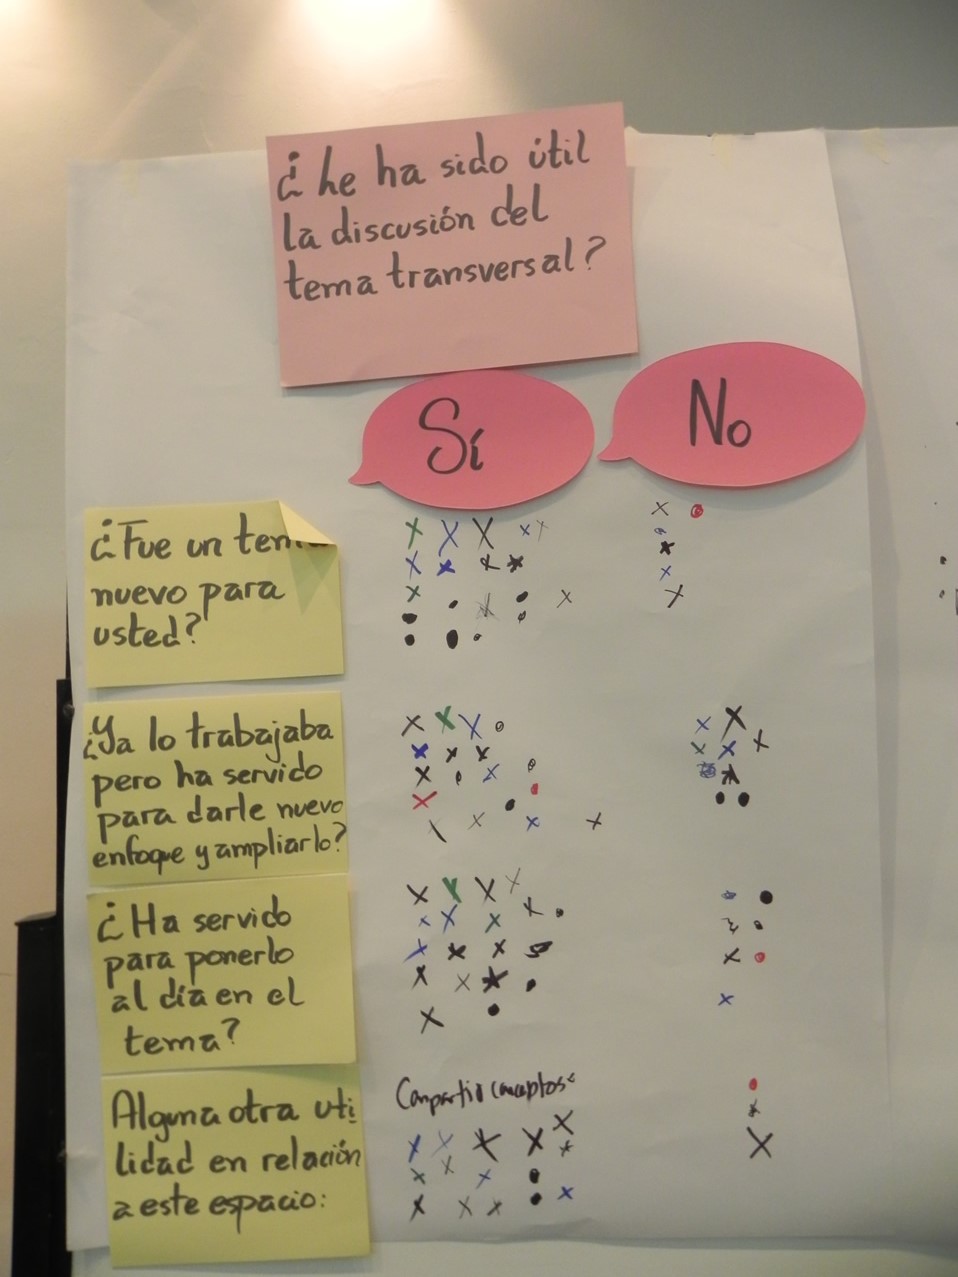 ¿he ha sido útil
la discusión del
tema transversal?
Sí
No
¿Fue un tem
nuevo para
usted?
¿Ya lo trabajaba
pero ha servido
para darle nuevo
enfoque y ampliarlo?
¿Ha servido
para ponerlo
al día en el
tema?
Alguna otra uti
lidad en relación
a este espacio:
Compartir conceptos